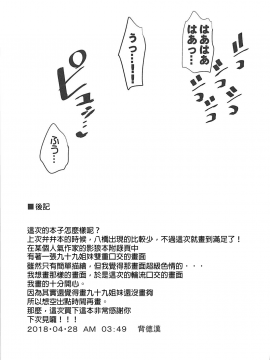 はあはあ
はあっ…
うっ…!!
ピュッ
ふう…
■後記
這次的本子怎麼樣呢？
上次弁弁本的時候，八橋出現的比較少，不過這次就畫到滿足了！
在某個人氣作家的影狼本附錄頁中
有著一張九十九姐妹雙重口交的畫面
雖然只有簡單描繪，但我覺得那畫面超級色情的．．．
我想畫那樣的畫面，於是這次的輪流口交的畫面
我畫的十分開心。
因為其實還覺得畫九十九姐妹還沒畫夠
所以想空出點時間再畫。
那麼，這次買下這本非常感謝你
下次見囉！！！
2018・04・28 AM 03:49 背德漢